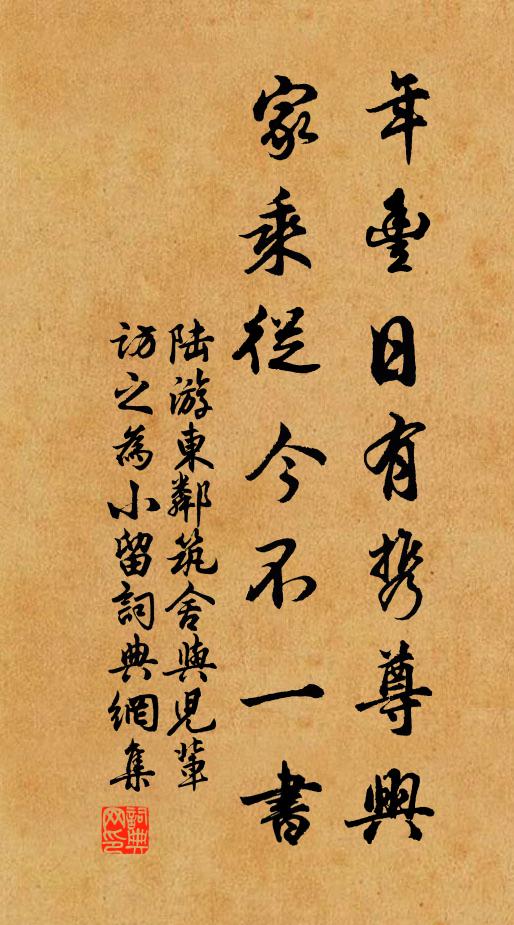 年豐日有携尊興
家乘從今不一書
陸游東鄰筑舍與児輩
訪之為小留詞典網集
詞典网印